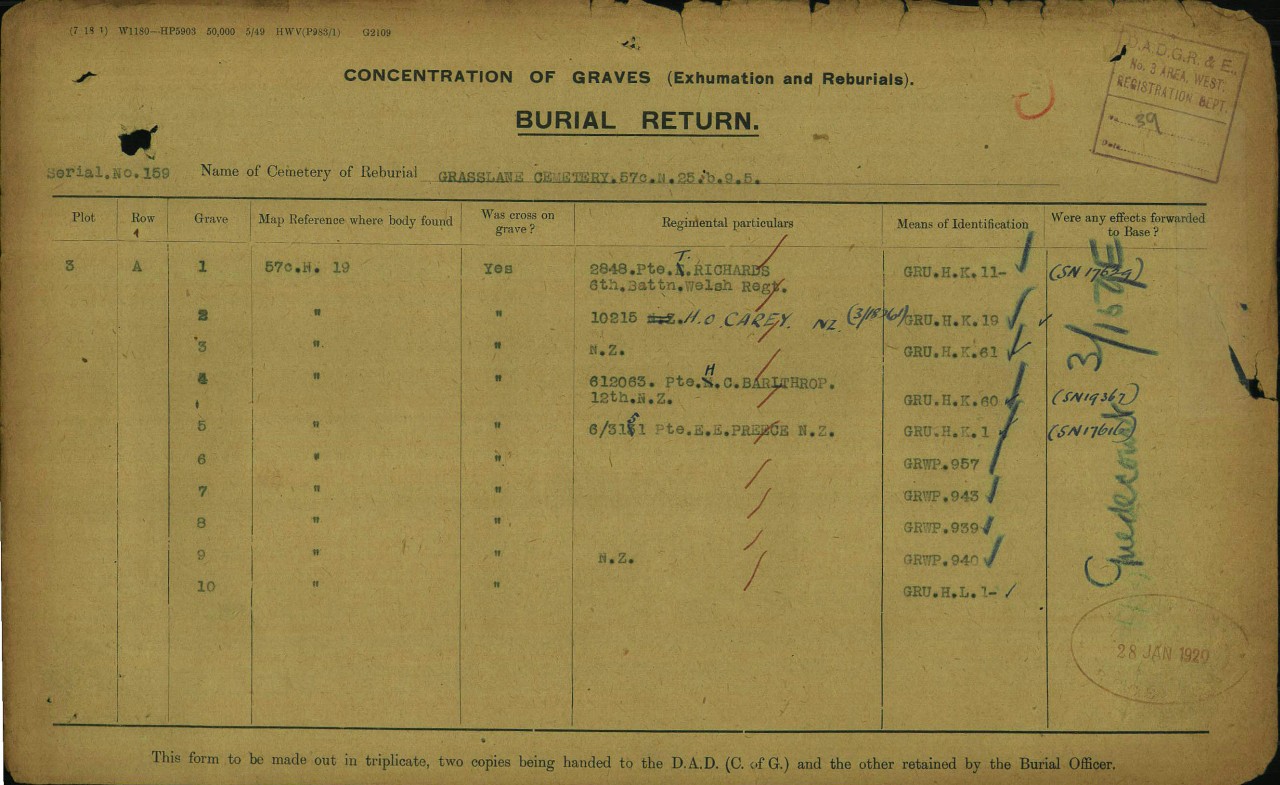 (7 18 1) W1180—HP5903 50,000 5/49 HWV(P983/1) G2109
CONCENTRATION OF GRAVES (Exhumation and Reburials).
BURIAL RETURN.
D.A.D.G.R. & E.
No. 3 AREA, WEST.
REGISTRATION DEPT.
No. 39
Date
Serial.No.159 Name of Cemetery of Reburial GRASSLANE CEMETERY.57c.N.25.b.9.5.
Plot Row Grave Map Reference where body found Was cross on grave? Regimental particulars Means of Identification Were any effects forwarded to Base?
3 A 1 57c.H. 19 Yes 2848.Pte.T. RICHARDS GRU.H.K.11- (SN 17629)
6th.Battn.Welsh Regt.
2 " " 10215 N.Z. H.O. CAREY. NZ. GRU.H.K.19
3 " " N.Z. GRU.H.K.61
4 " " 612063. Pte.H.C.BARLTHROP. GRU.H.K.60 (SN19367)
12th.N.Z.
5 " " 6/3151 Pte.E.E.PREECE N.Z. GRU.H.K.1 (SN17616)
6 " " GRWP.957
7 " " GRWP.943
8 " " GRWP.939
9 " " N.Z. GRWP.940
10 " " GRU.H.L.1-
Gueudecourt 3/157E
28 JAN 1920
This form to be made out in triplicate, two copies being handed to the D.A.D. (C. of G.) and the other retained by the Burial Officer.